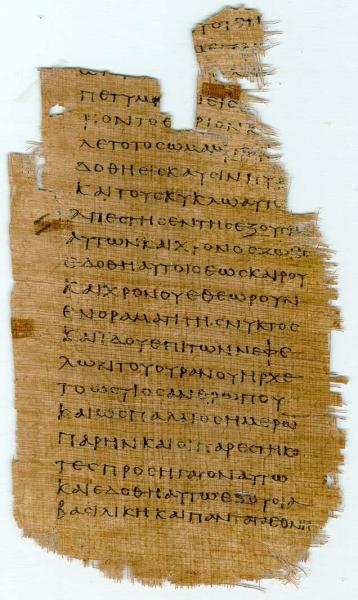 ΠΕΤΥΜ
ΛΕΤΟ ΤΟ ϹΩΜΑ
ΔΟΘΗ ΕΙϹ ΚΑΥϹΙΝ ΠΥΡ
ΚΑΙ ΤΟΥϹ ΚΥΚΛΩ ΑΥΤ
ΑΠΕϹΤΗϹΕΝ ΤΗϹ ΕΞΟΥϹΙΑ
ΑΥΤΩΝ ΚΑΙ ΧΡΟΝΟϹ ΖΩΗϹ
ΕΔΟΘΗ ΑΥΤΟΙϹ ΕΩϹ ΚΑΙΡΟΥ
ΚΑΙ ΧΡΟΝΟΥ ΕΘΕΩΡΟΥΝ
ΕΝ ΟΡΑΜΑΤΙ ΤΗϹ ΝΥΚΤΟϹ
ΚΑΙ ΙΔΟΥ ΕΠΙ ΤΩΝ ΝΕΦΕ
ΛΩΝ ΤΟΥ ΟΥΡΑΝΟΥ ΗΡΧΕ
ΤΟ ΩϹ ΥΙΟϹ ΑΝΘΡΩΠΟΥ
ΚΑΙ ΩϹ ΠΑΛΑΙΟϹ ΗΜΕΡΩ
ΠΑΡΗΝ ΚΑΙ ΟΙ ΠΑΡΕϹΤΗΚΟ
ΤΕϹ ΠΡΟϹΗΓΑΓΟΝ ΑΥΤΩ
ΚΑΙ ΕΔΟΘΗ ΑΥΤΩ ΕΞΟΥϹΙΑ
ΒΑϹΙΛΙΚΗ ΚΑΙ ΠΑΝΤΑ ΤΑ ΕΘΝΗ